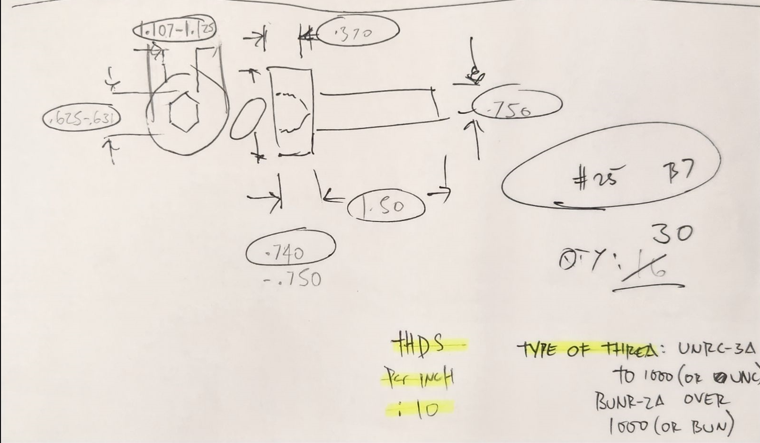 1.107-1.125
.370
.625-.631
.750
1.50
#25 B7
.740
-.750
30
QTY: 16
THDS
Per INCH
: 10
TYPE OF THREA: UNRC-3A
TO 1000 (OR UNC)
BUNR-2A OVER
1000 (OR BUN)